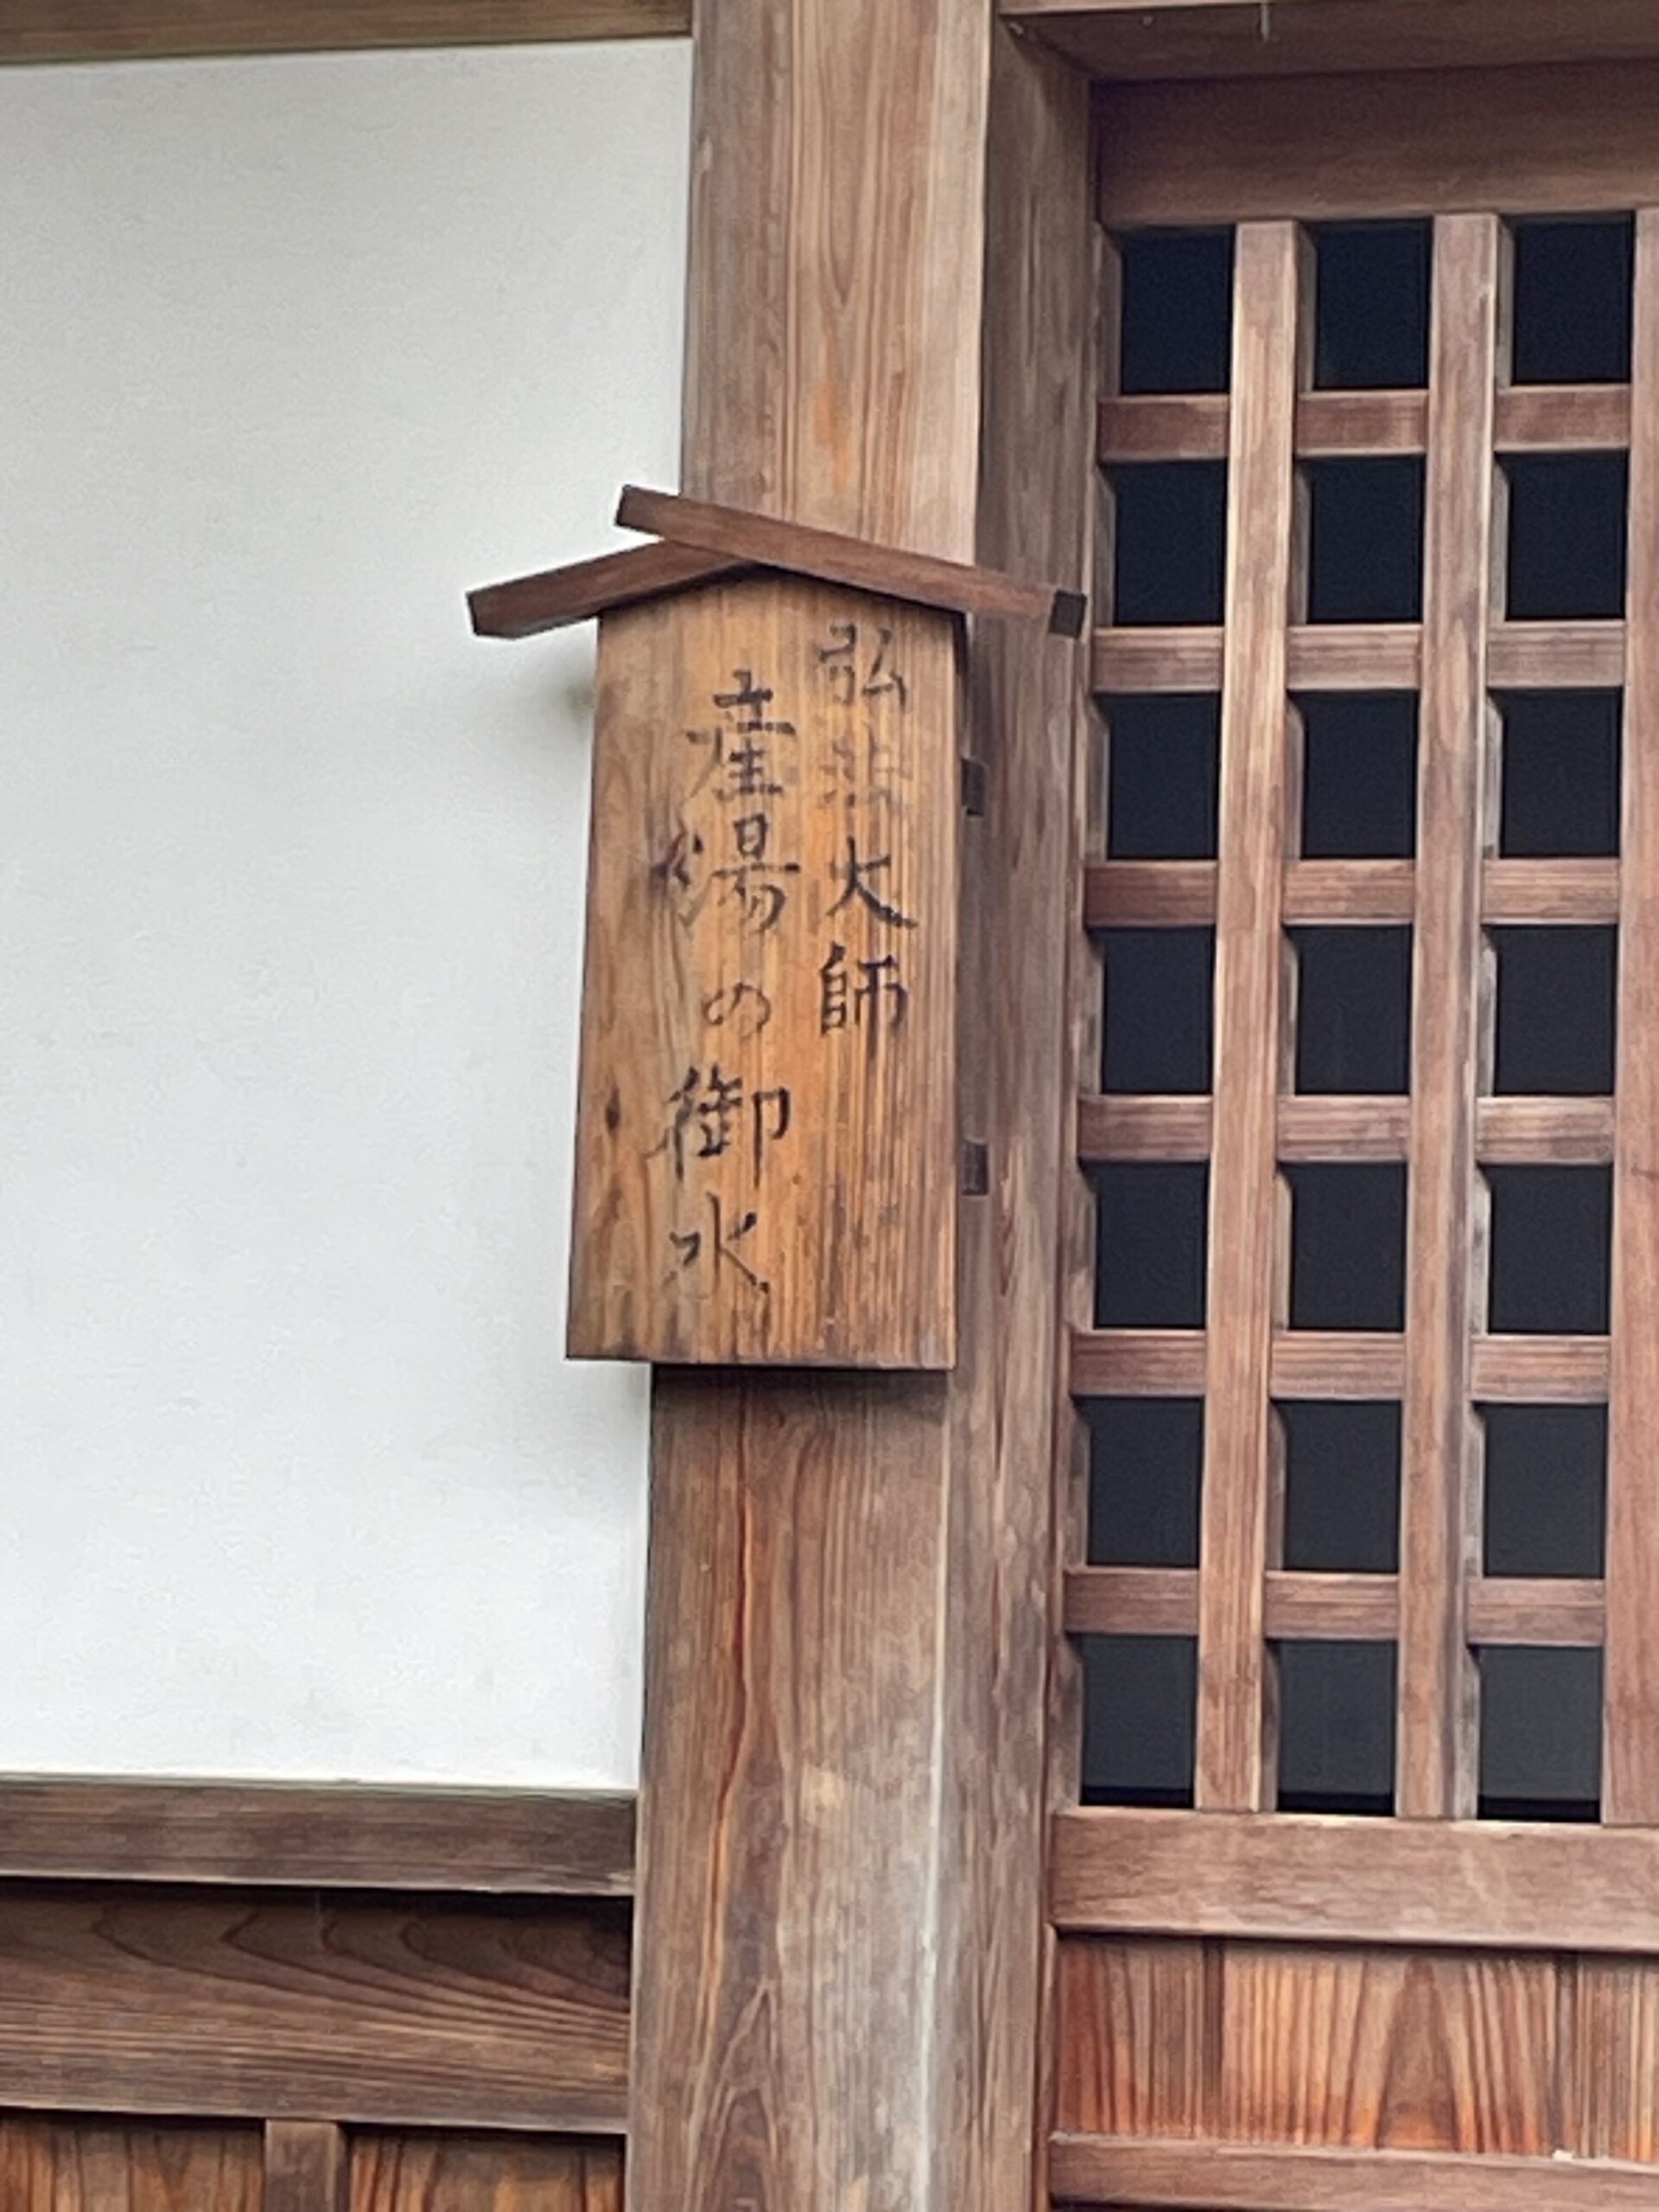 弘法大師
産湯の御水